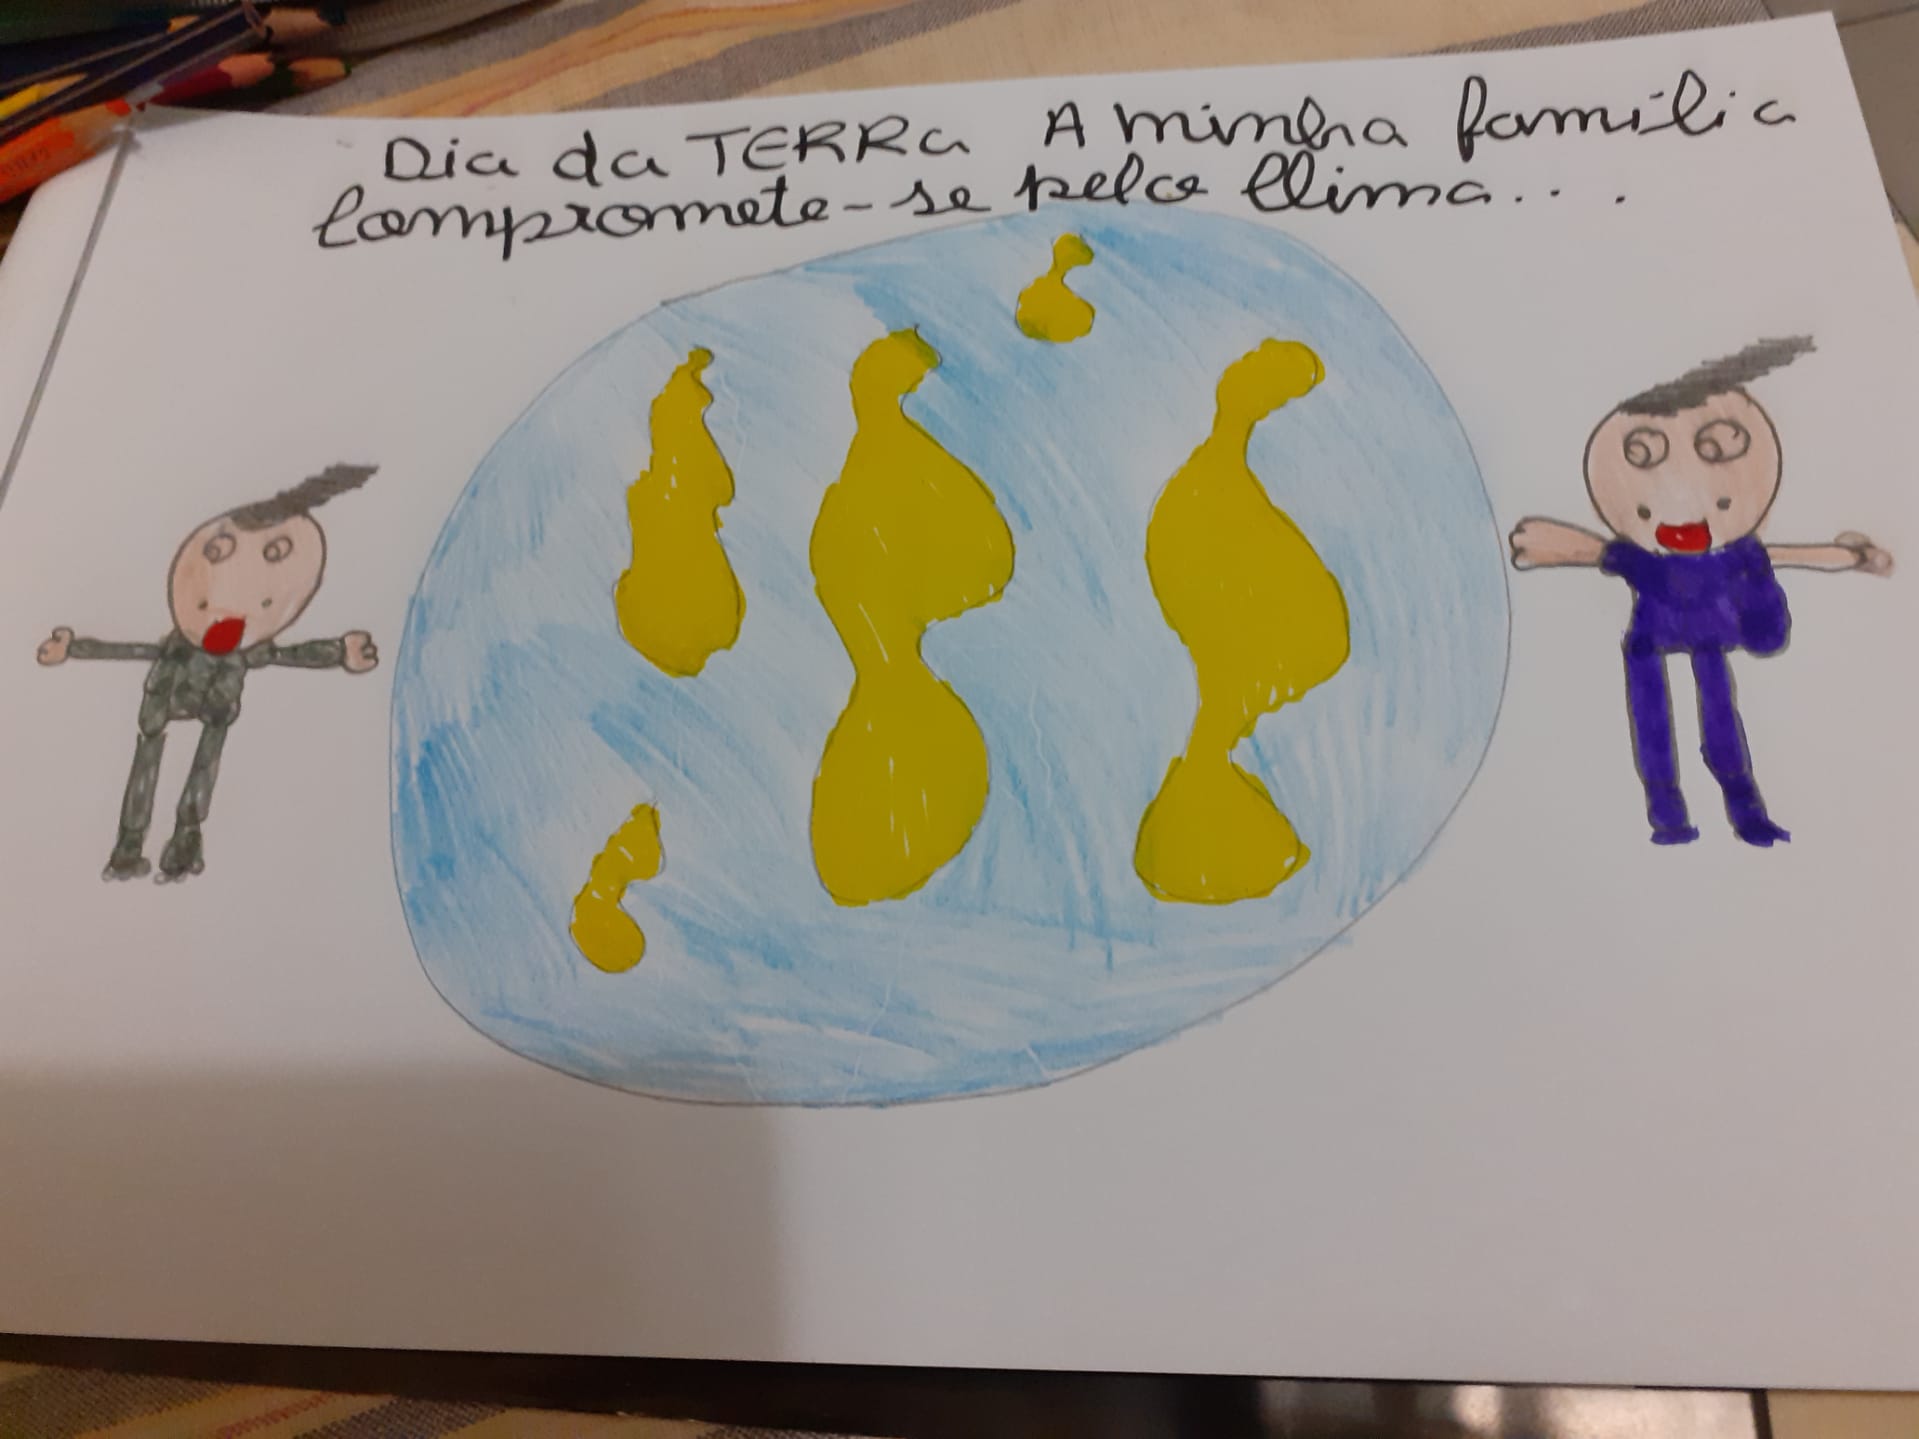 Dia da TERRa A minha família
compromete-se pelo Clima...